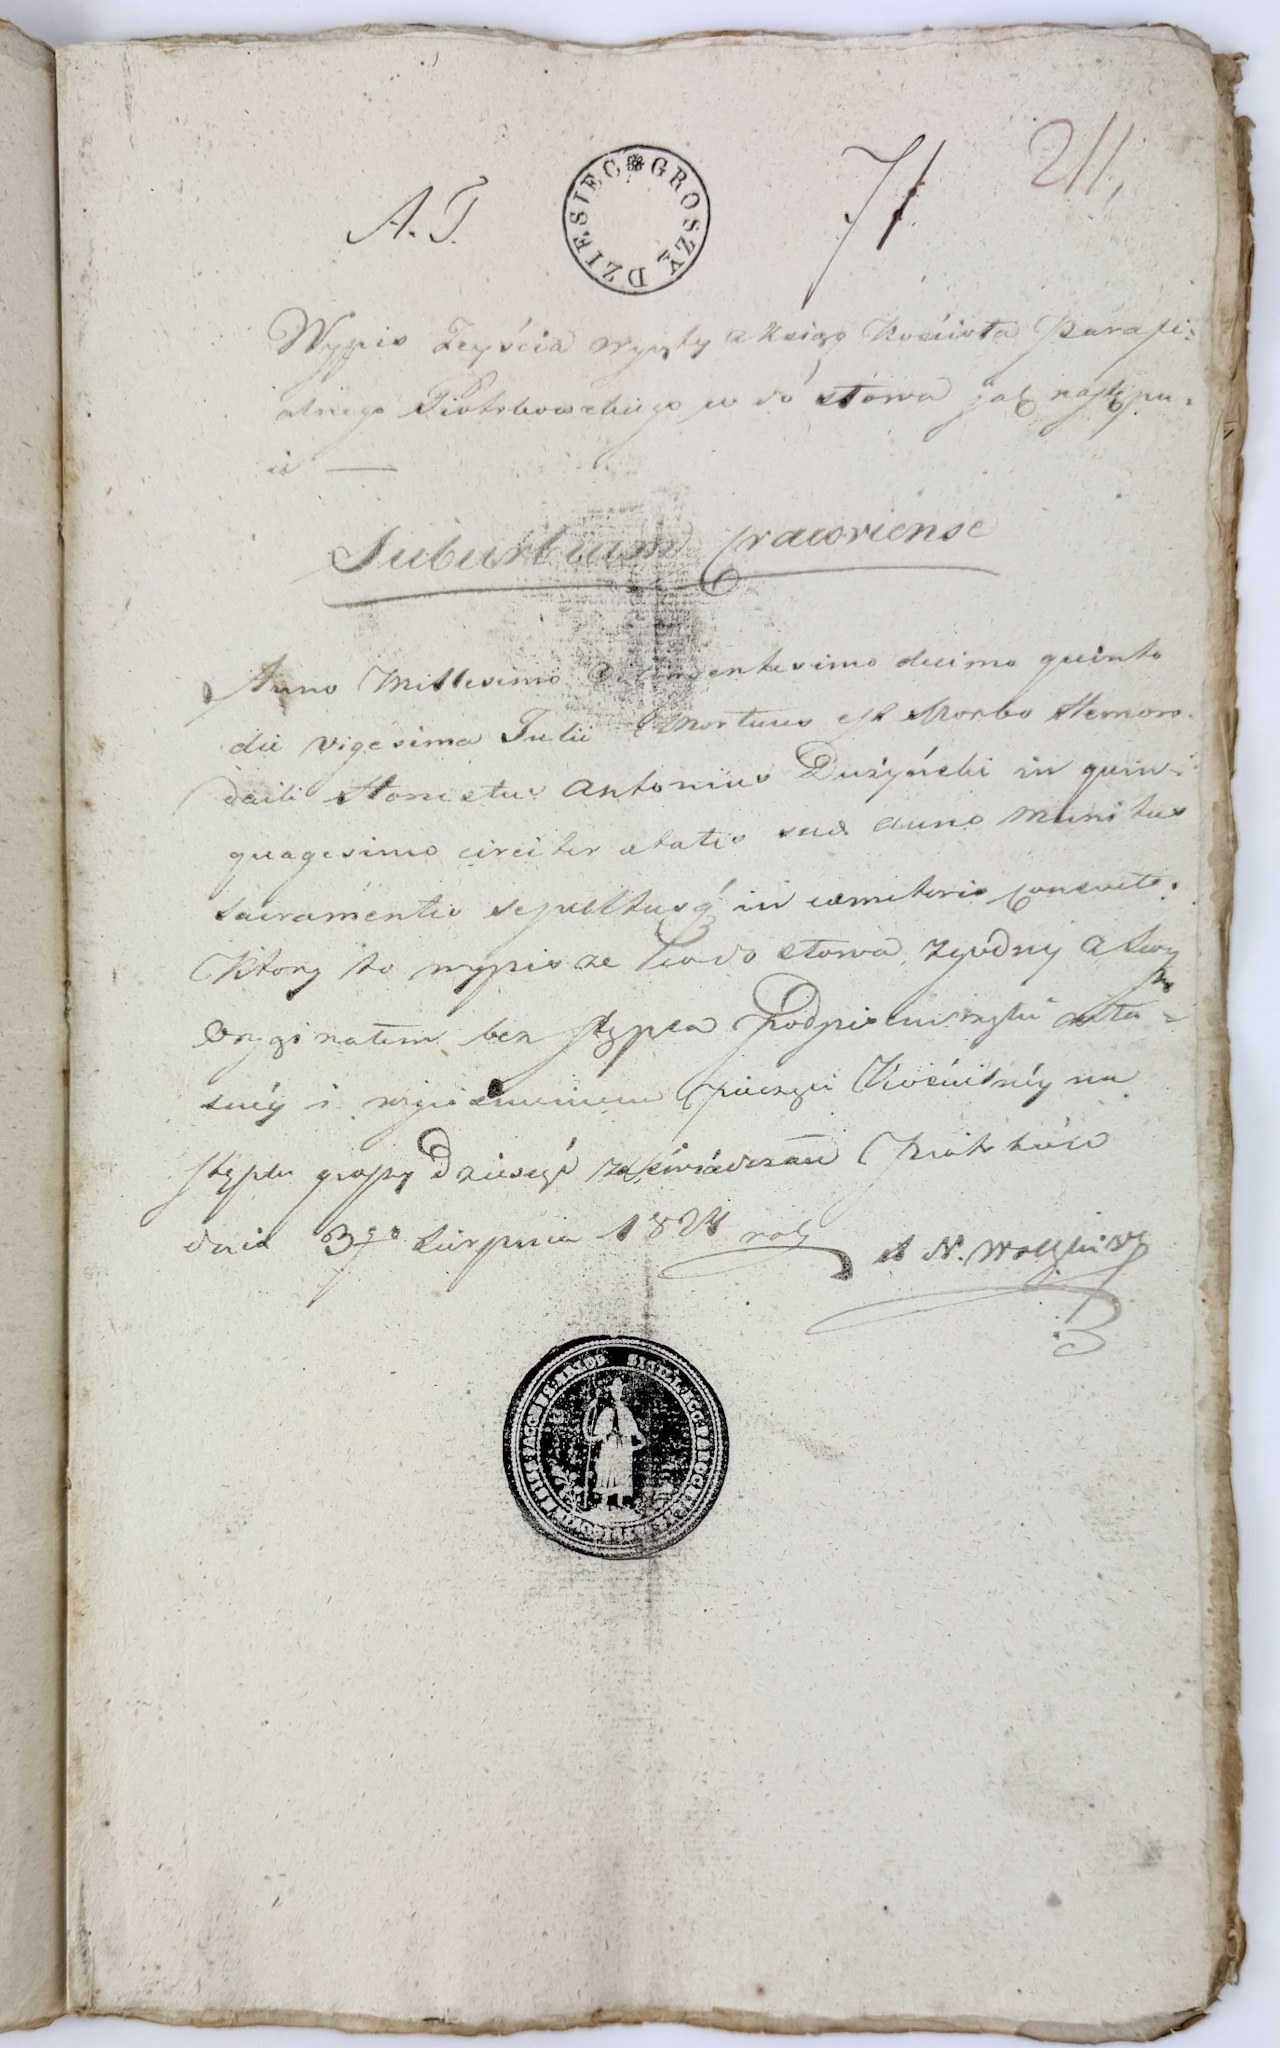 A. T.
DZIESIEC GROSZY
71
211,
Wypis Zeyścia wyjęty z Ksiąg Kościoła Parafi-
alnego Piotrkowskiego co do słowa jak nastepu-
ie —
Suburbium Cracoviense
Anno Millesimo Octingentesimo decimo quinto
die vigesima Julii Mortuus est Morbo Hemoro-
idali Honestus Antonius Dużyński in quin-
quagesimo circiter etatis sue anno Munitus
Sacramentis sepultusq in cemeterio consueto.
Ktory to wypis ze Co do słowa zgodny z swy
m
Oryginałem bez stępla Podpisem ręki wła-
snéy i wyciśnieniem pieczęci Kościelnéy na
stęplu groszy Dziesięć zaświadczam Piotrków
dnia 3go Sierpnia 1824 roku
SIGILL